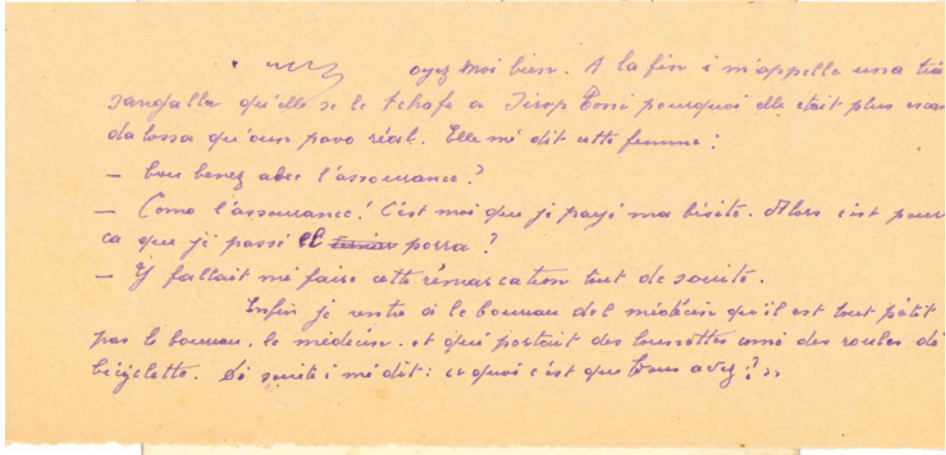 oyez moi bien. A la fin i m'appelle una tia
sangalla qu'elle se le tchafe a Sirop Toni pourquoi elle était plus escan
dalossa qu'oun pavo réal. Elle mé dit cette femme :
— bou benez abec l'assourance ?
— Como l'assourance ! C'est moi que jé payé ma bisite. Alors c'est pour
ca que jé passé el porra ?
— Y fallait mé faire cette rémarcation tout de souité.
Enfin jé rentre à le boureau del médécin qu'il est tout pétit
pas le boureau, le médécin. et qué portait des lounettes comé des roules dé
bicyclette. Dé souite i mé dit : ce quoi c'est que bous avez ? »